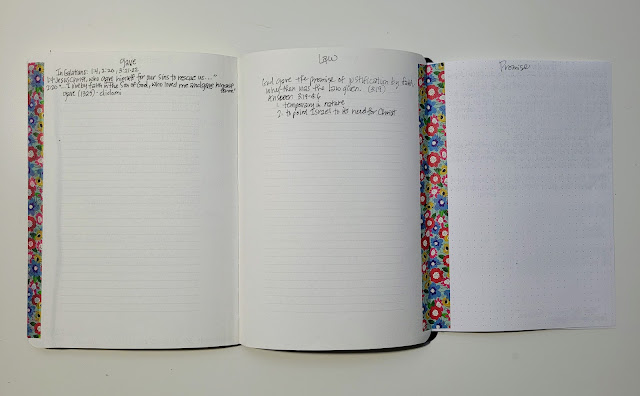 gave
In Galatians: 1:4, 2:20, 3:21-22
1:4 Jesus Christ, who gave himself for our sins to rescue us..."
2:20 "... I live by faith in the Son of God, who loved me and gave himself
for me."
gave (1325) - didomi
Law
God gave the promise of justification by faith,
why then was the law given. (3:19)
Answer: 3:19-4:6
1. temporary in nature
2. to point Israel to its need for Christ
Promise